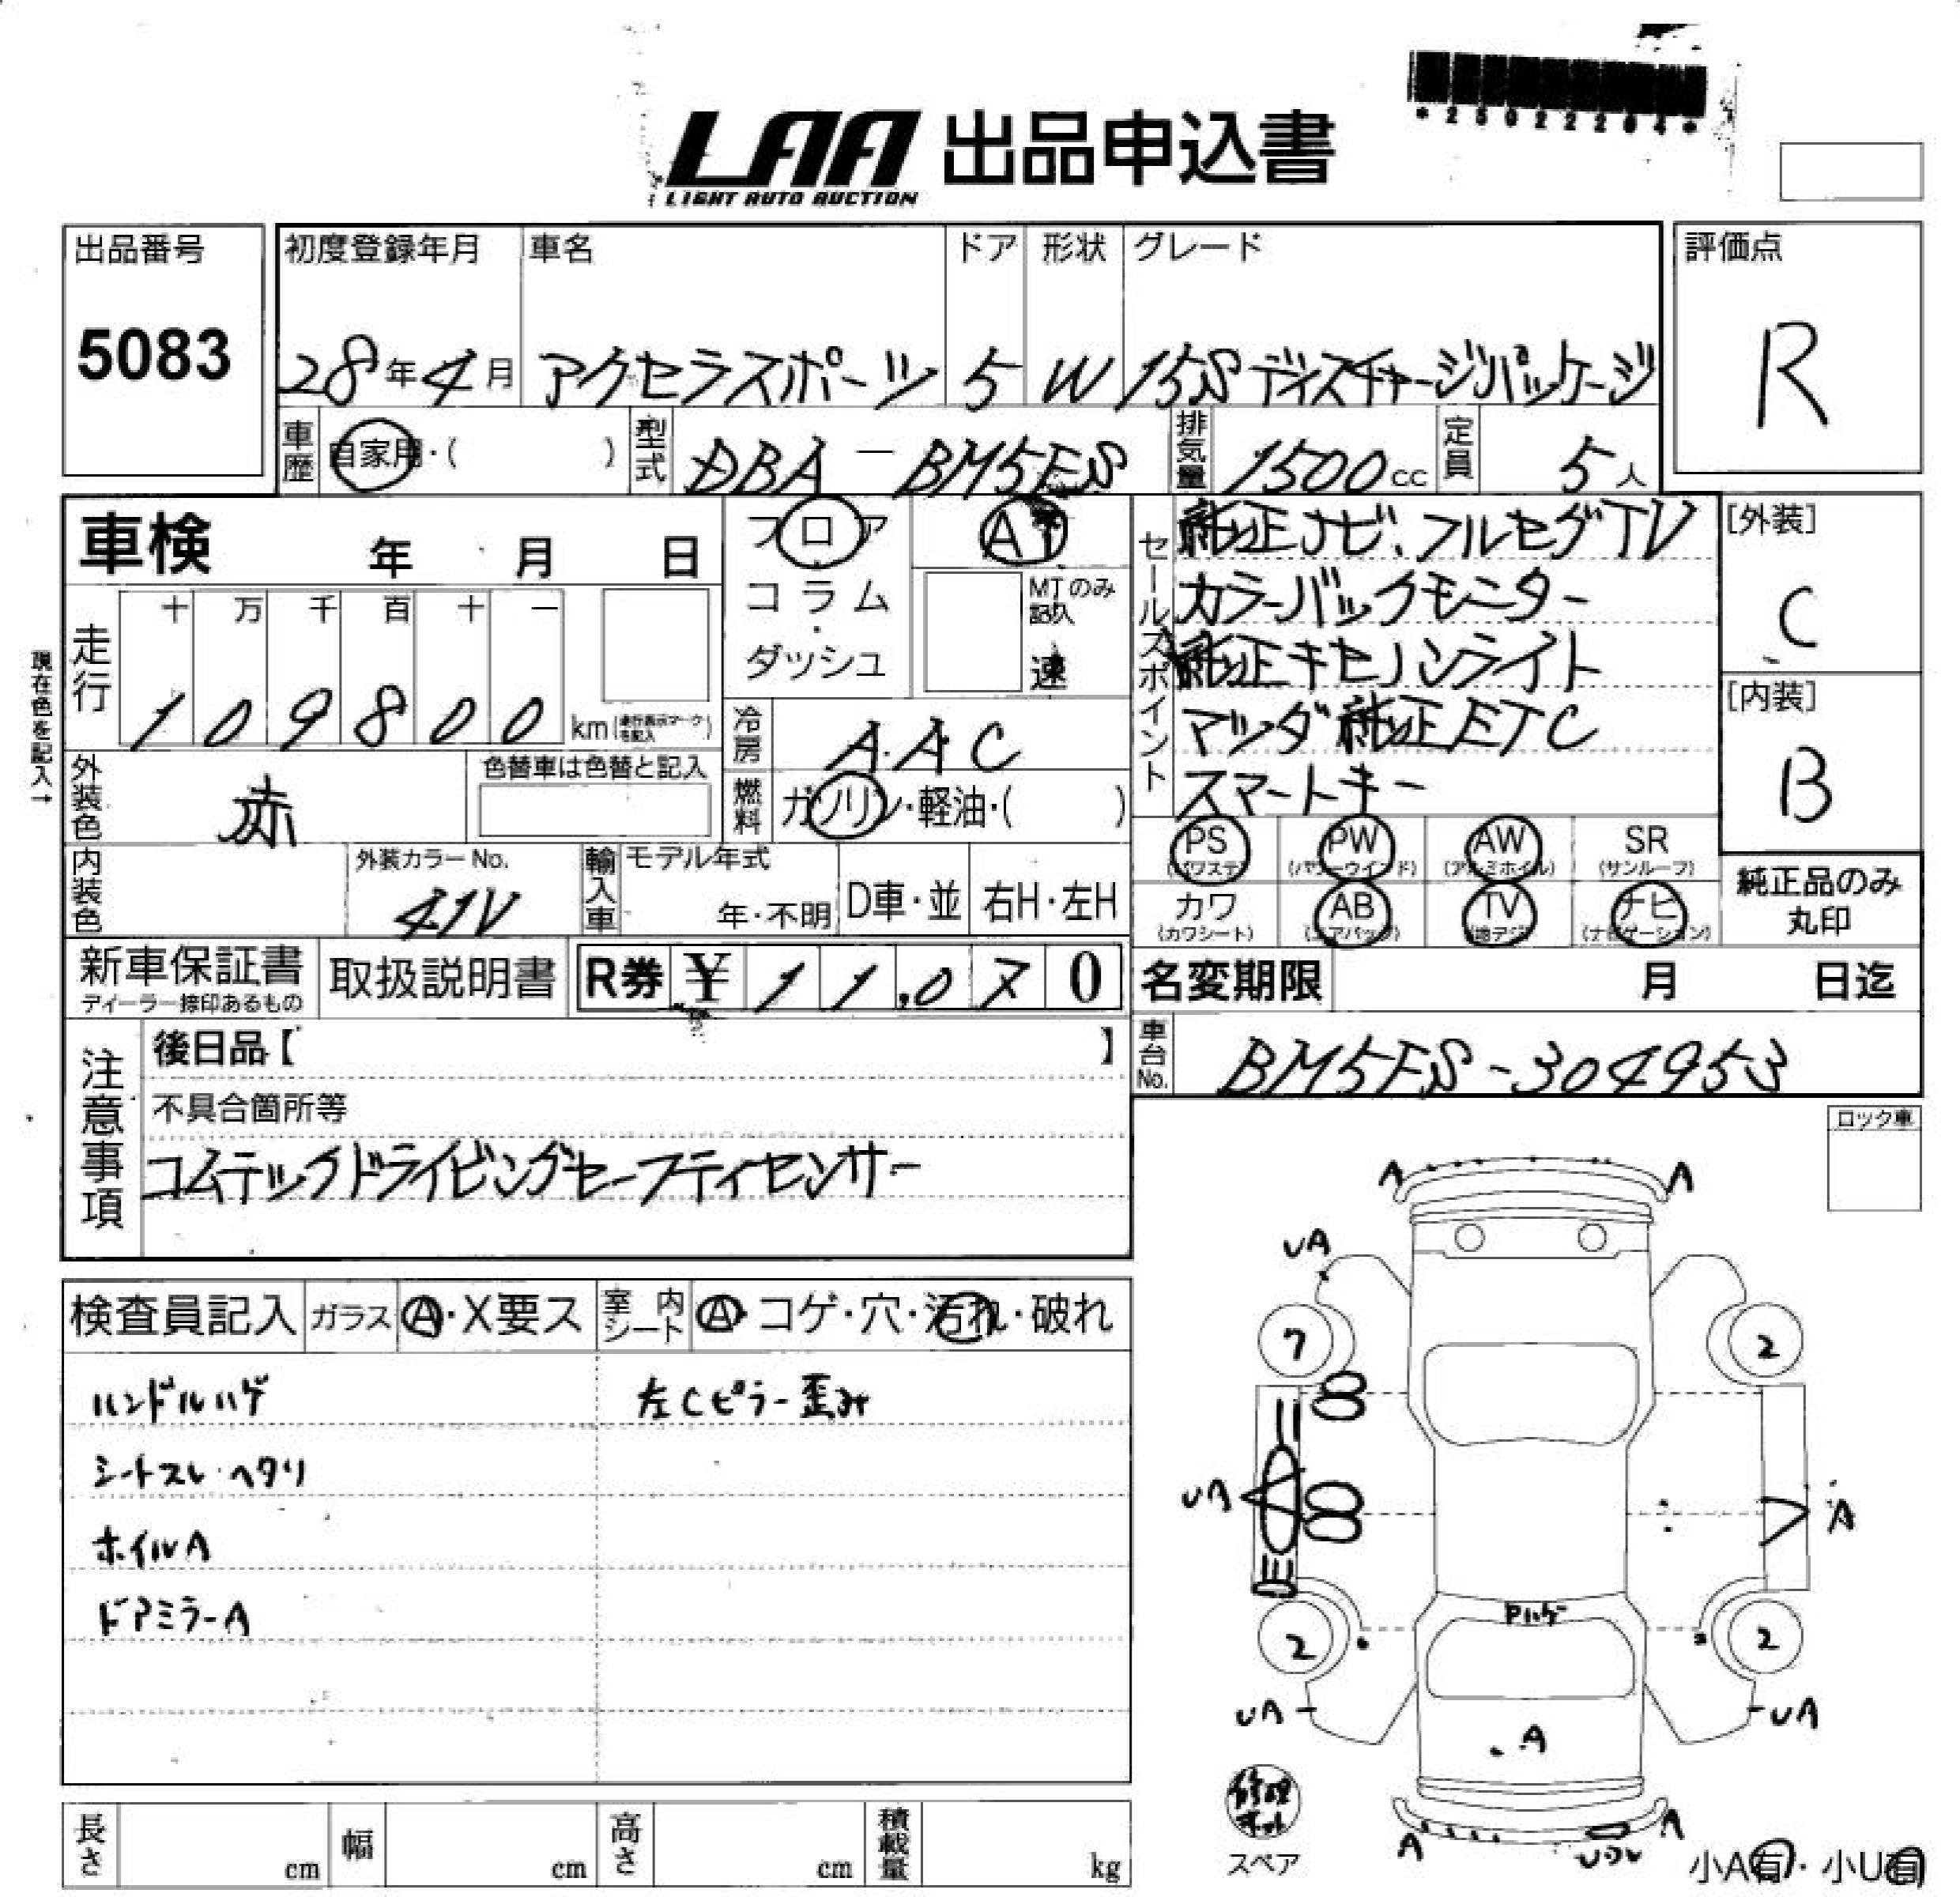 *25022204*
LAA 出品申込書
LIGHT AUTO AUCTION
出品番号
5083
初度登録年月 車名 ドア 形状 グレード
28年4月 アクセラスポーツ 5 W 15S ディスチャージパッケージ
評価点
R
車歴 自家用・( ) 型式 DBA-BM5FS 排気量 1500cc 定員 5人
車検 年 月 日
フロア・コラム・ダッシュ
AT
MTのみ記入
速
セールスポイント
純正ナビ、フルセグTV
カラーバックモニター
純正キセノンライト
マツダ純正ETC
スマートキー
[外装]
C
[内装]
B
現在色を記入→
走行
十 万 千 百 十 一
1 0 9 8 0 0 km(走行表示マークを記入)
冷房 AAC
外装色 赤
色替車は色替と記入
燃料 ガソリン・軽油・( )
PS AW PW SR
(パワステ) (パワーウインド) (アルミホイル) (サンルーフ)
カワ AB TV ナビ
(カワシート) (エアバック) (地デジ) (ナビゲーション)
純正品のみ
丸印
内装色
外装カラーNo.
41V
輸入車 モデル年式
年・不明 D車・並 右H・左H
新車保証書
ディーラー捺印あるもの
取扱説明書
R券 ¥ 11,070
名変期限 月 日迄
車台No. BM5FS-304953
注意事項
後日品【 】
不具合箇所等
コムテックドライビングセーフティセンサー
ロック車
検査員記入 ガラス A・X要ス 室内シート A・コゲ・穴・汚れ・破れ
ハンドルハゲ 左Cピラー歪み
シートスレ・ヘタリ
ホイルA
ドアミラーA
A A
UA
7 2
UA A
Pハゲ
2 2
UA UA
A
修理キット
スペア
A A
小A有・小U有
長さ cm 幅 cm 高さ cm 積載量 kg